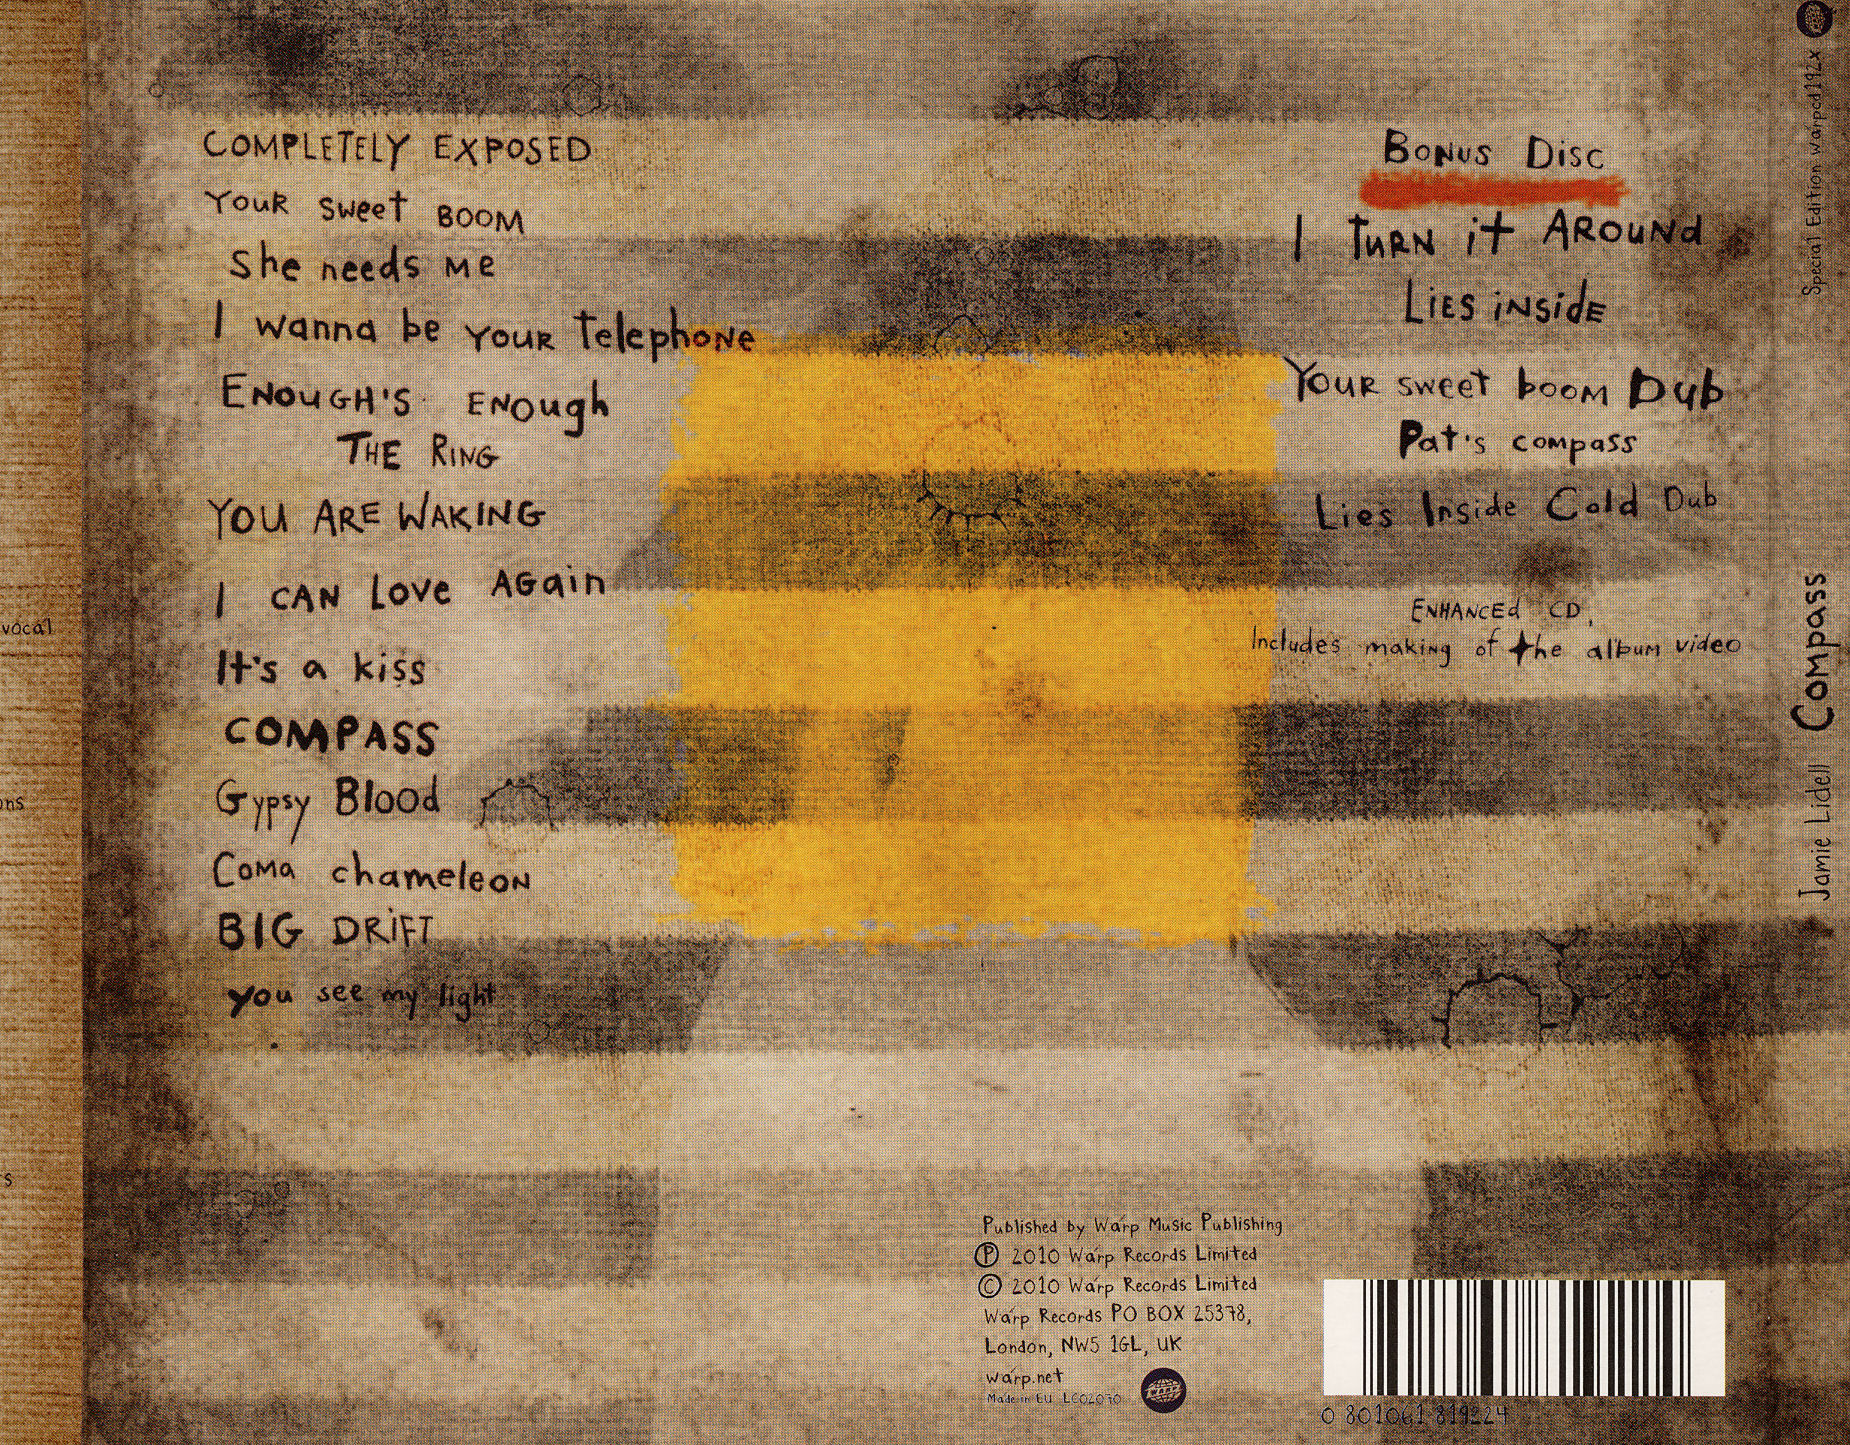 COMPLETELY EXPOSED
YOUR sweet BOOM
She needs me
I wanna be YOUR Telephone
ENOUGH'S ENOugh
THE RING
YOU ARE WAKING
I CAN LOVE AGain
It's a kiss
COMPASS
Gypsy Blood
Coma chameleon
BIG DRIFT
you see my light
Bonus Disc
I TURN it AROUNd
LIES iNSidE
YOUR sweet boom Dub
Pat's compass
Lies Inside Cold Dub
ENHANCEd CD,
Includes making of the album video
Published by Warp Music Publishing
Ⓟ 2010 Warp Records Limited
© 2010 Warp Records Limited
Warp Records PO BOX 25378,
London, NW5 1GL, UK
warp.net
Made in EU LC02070
0 801061 819224
Jamie Lidell Compass
Special Edition warpcd192x
vocal
ons
s